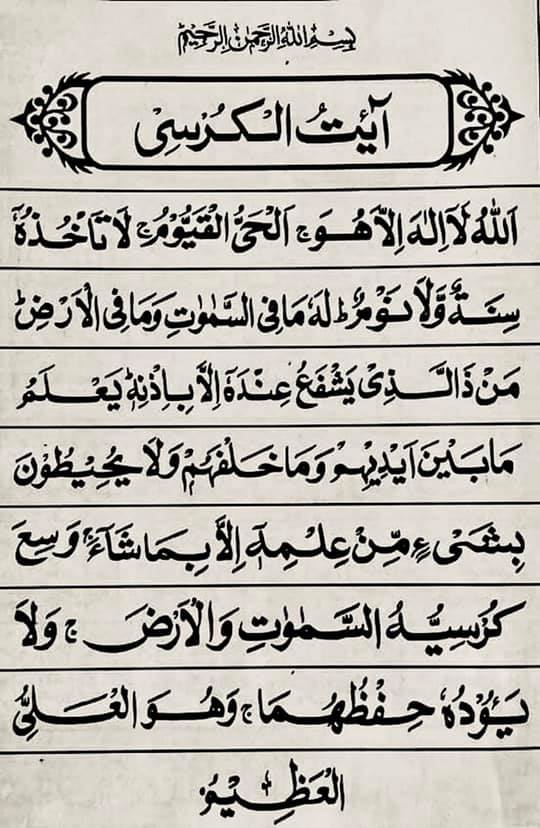 بِسْمِ اللهِ الرَّحْمٰنِ الرَّحِيْمِ
آيَتُ الْكُرْسِىْ
اَللهُ لَآ اِلٰهَ اِلَّا هُوَ ۚ اَلْحَىُّ الْقَيُّوْمُ ۚ لَا تَاْخُذُهٗ
سِنَةٌ وَّلَا نَوْمٌ ؕ لَهٗ مَا فِى السَّمٰوٰتِ وَمَا فِى الْاَرْضِ ؕ
مَنْ ذَا الَّذِىْ يَشْفَعُ عِنْدَهٗٓ اِلَّا بِاِذْنِهٖ ؕ يَعْلَمُ
مَا بَيْنَ اَيْدِيْهِمْ وَمَا خَلْفَهُمْ وَلَا يُحِيْطُوْنَ
بِشَىْءٍ مِّنْ عِلْمِهٖٓ اِلَّا بِمَا شَآءَ ۚ وَسِعَ
كُرْسِيُّهُ السَّمٰوٰتِ وَالْاَرْضَ ۚ وَلَا
يَـُٔوْدُهٗ حِفْظُهُمَا ۚ وَهُوَ الْعَلِىُّ
الْعَظِيْمُ